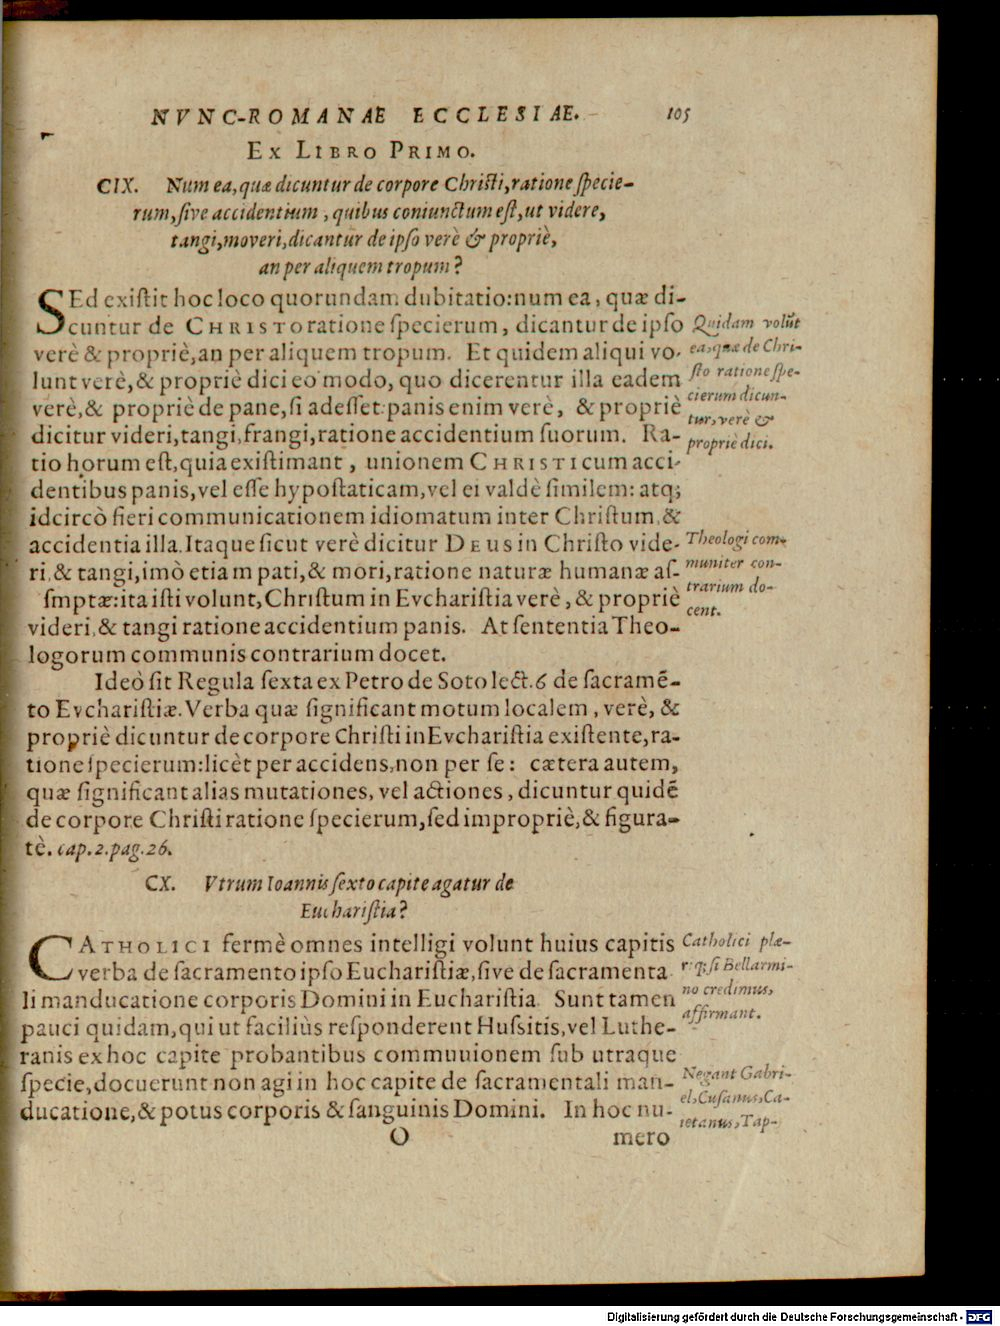 NVNC-ROMANAE ECCLESIAE. 105
EX LIBRO PRIMO.
CIX. Num ea, quæ dicuntur de corpore Christi, ratione specie-
rum, sive accidentium, quibus coniunctum est, ut videre,
tangi, moveri, dicantur de ipso verè & propriè,
an per aliquem tropum?
SEd existit hoc loco quorundam dubitatio: num ea, quæ di-
cuntur de CHRISTO ratione specierum, dicantur de ipso
verè & propriè, an per aliquem tropum. Et quidem aliqui vo-
lunt verè, & propriè dici eo modo, quo dicerentur illa eadem
verè, & propriè de pane, si adesset: panis enim verè, & propriè
dicitur videri, tangi, frangi, ratione accidentium suorum. Ra-
tio horum est, quia existimant, unionem CHRISTI cum acci-
dentibus panis, vel esse hypostaticam, vel ei valdè similem: atq;
idcircò fieri communicationem idiomatum inter Christum, &
accidentia illa. Itaque sicut verè dicitur DEUS in Christo vide-
ri, & tangi, imò etiam pati, & mori, ratione naturæ humanæ as-
smptæ: ita isti volunt, Christum in Evcharistia verè, & propriè
videri, & tangi ratione accidentium panis. At sententia Theo-
logorum communis contrarium docet.
Quidam volūt
ea, quæ de Chri-
sto ratione spe-
cierum dicun-
tur, verè &
propriè dici.
Theologi com-
muniter con-
trarium do-
cent.
Ideò sit Regula sexta ex Petro de Soto lect. 6 de sacramē-
to Evcharistiæ. Verba quæ significant motum localem, verè, &
propriè dicuntur de corpore Christi in Evcharistia existente, ra-
tione specierum: licèt per accidens, non per se: cætera autem,
quæ significant alias mutationes, vel actiones, dicuntur quidē
de corpore Christi ratione specierum, sed impropriè, & figura-
tè. cap. 2. pag. 26.
CX. Vtrum Ioannis sexto capite agatur de
Eucharistia?
CATHOLICI fermè omnes intelligi volunt huius capitis
verba de sacramento ipso Eucharistiæ, sive de sacramenta
li manducatione corporis Domini in Eucharistia. Sunt tamen
pauci quidam, qui ut faciliùs responderent Hussitis, vel Luthe-
ranis ex hoc capite probantibus commuuionem sub utraque
specie, docuerunt non agi in hoc capite de sacramentali man-
ducatione, & potus corporis & sanguinis Domini. In hoc nu-
Catholici plæ-
riq; si Bellarmi-
no credimus,
affirmant.
Negant Gabri-
el, Cusanus, Ca-
ietanus, Tap-
O mero
Digitalisierung gefördert durch die Deutsche Forschungsgemeinschaft - DFG